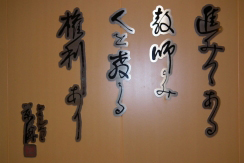 進みつゝある
教師のみ
人を教ふる
権利あり